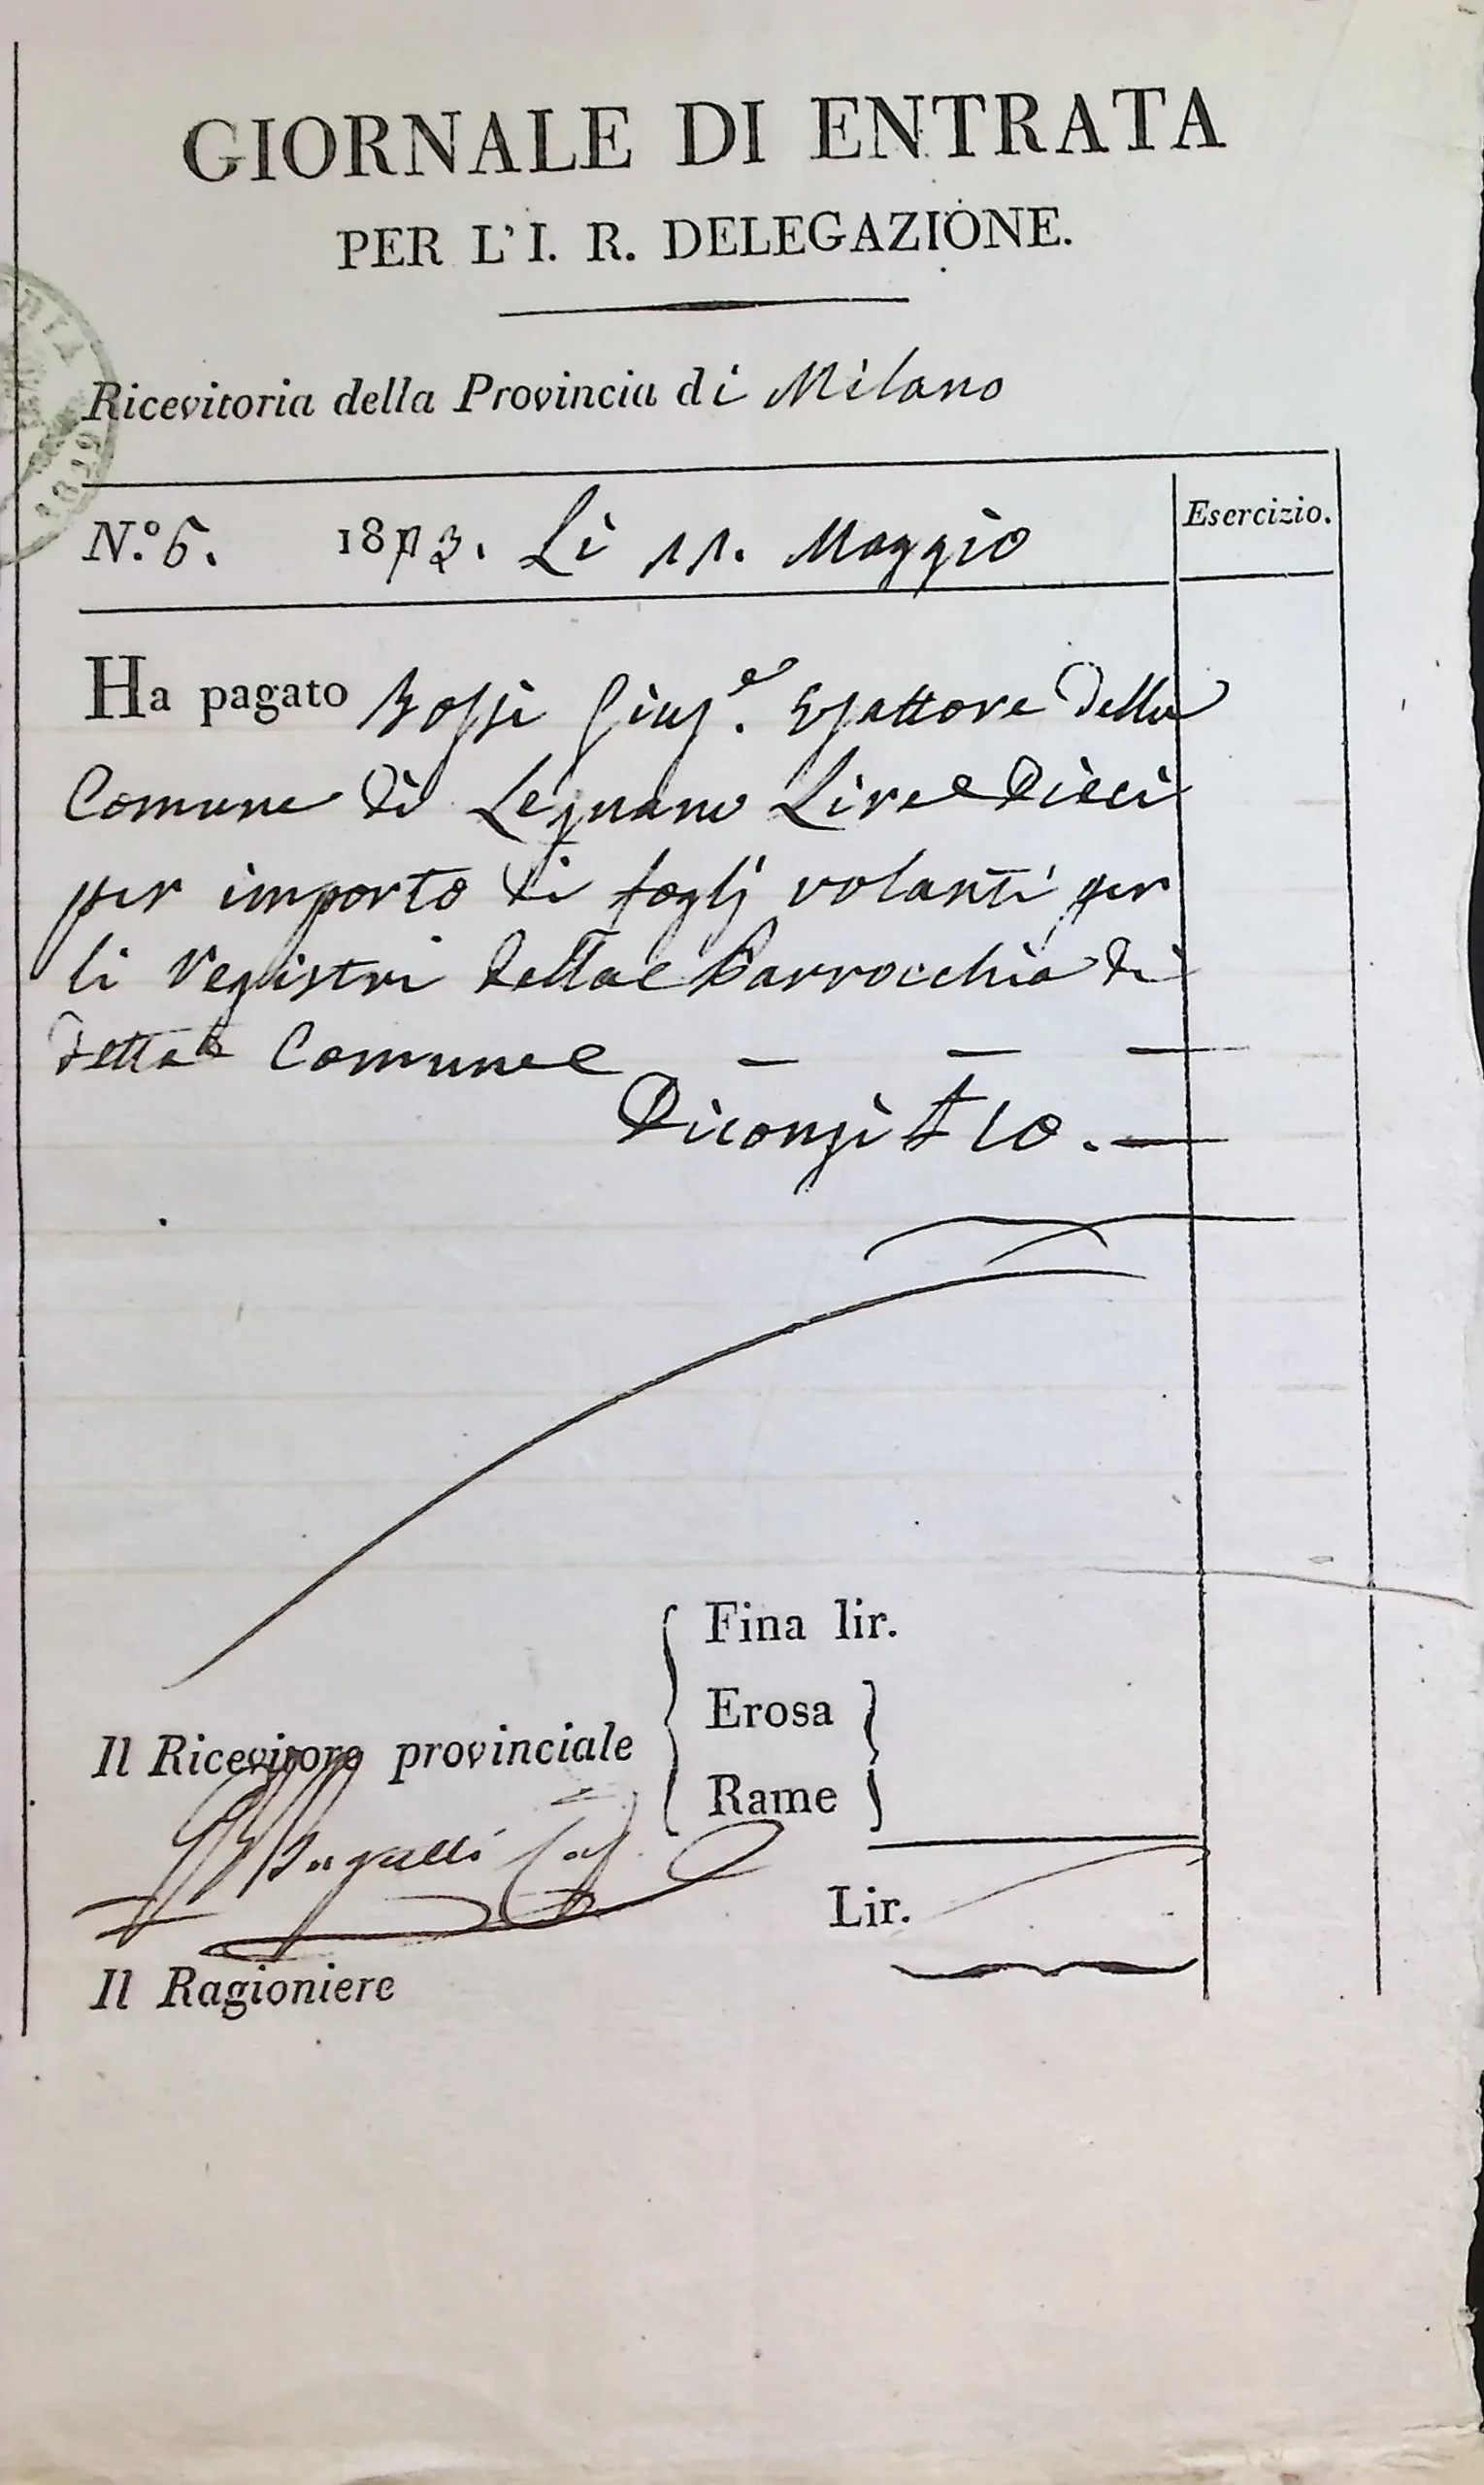 GIORNALE DI ENTRATA
PER L'I. R. DELEGAZIONE.
Ricevitoria della Provincia di Milano
N.º 6. Li 11. Maggio
Esercizio.
Ha pagato Rossi Gius.e Esattore della
Comune di Legnano Lire Dieci
per importo di foglj volanti per
li Registri della Parrocchia di
detta Comune — — —
Diconsi £ 10. —
Fina lir.
Erosa
Il Ricevitore provinciale
Rame
Lir.
Il Ragioniere